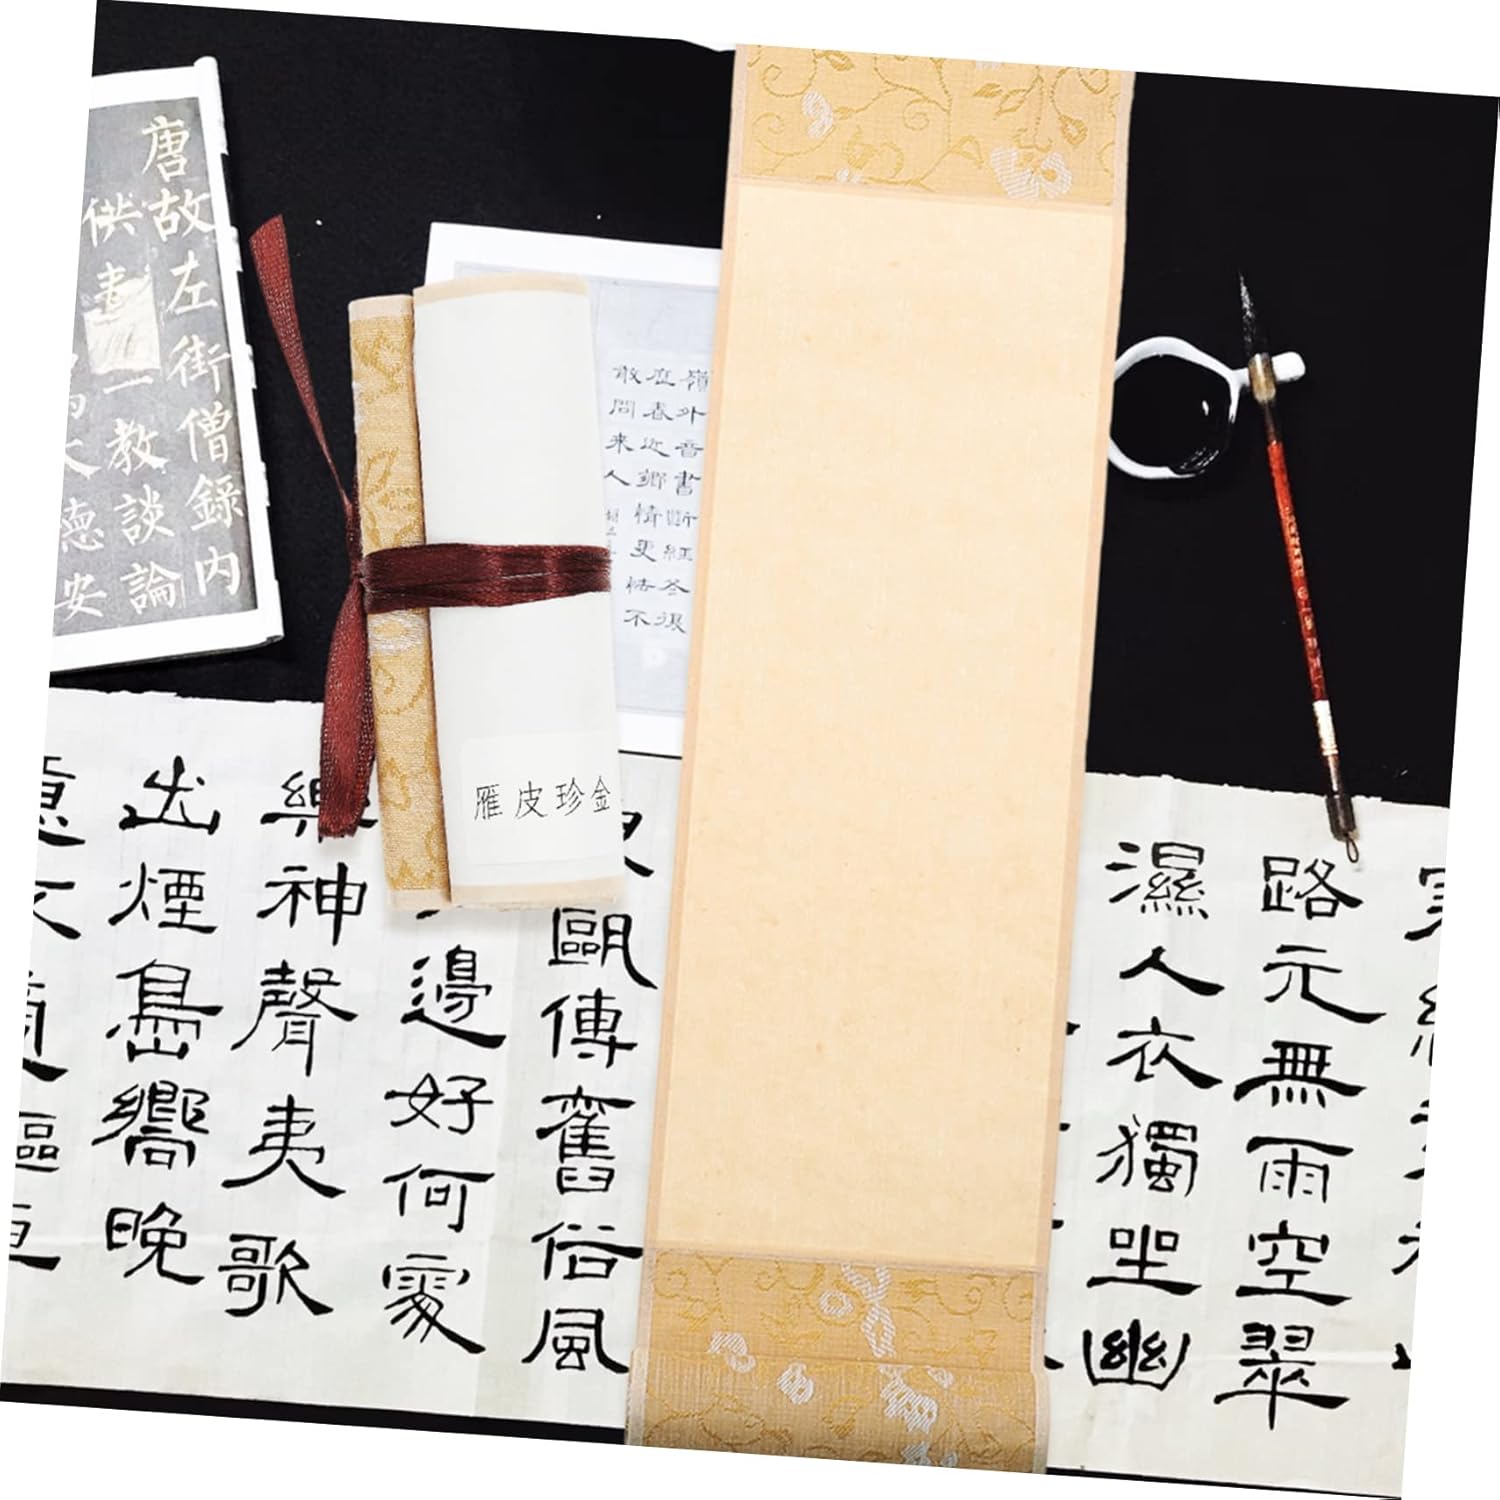 唐故左街僧錄内
教談論
德安
嶺外音書斷經冬復
歷春近鄉情更怯不
敢問来人
雁皮珍金
路元無雨空翠
濕人衣獨坐幽
甌傳舊俗風
邊好何處
樂神聲夷歌
出煙島嚮晚